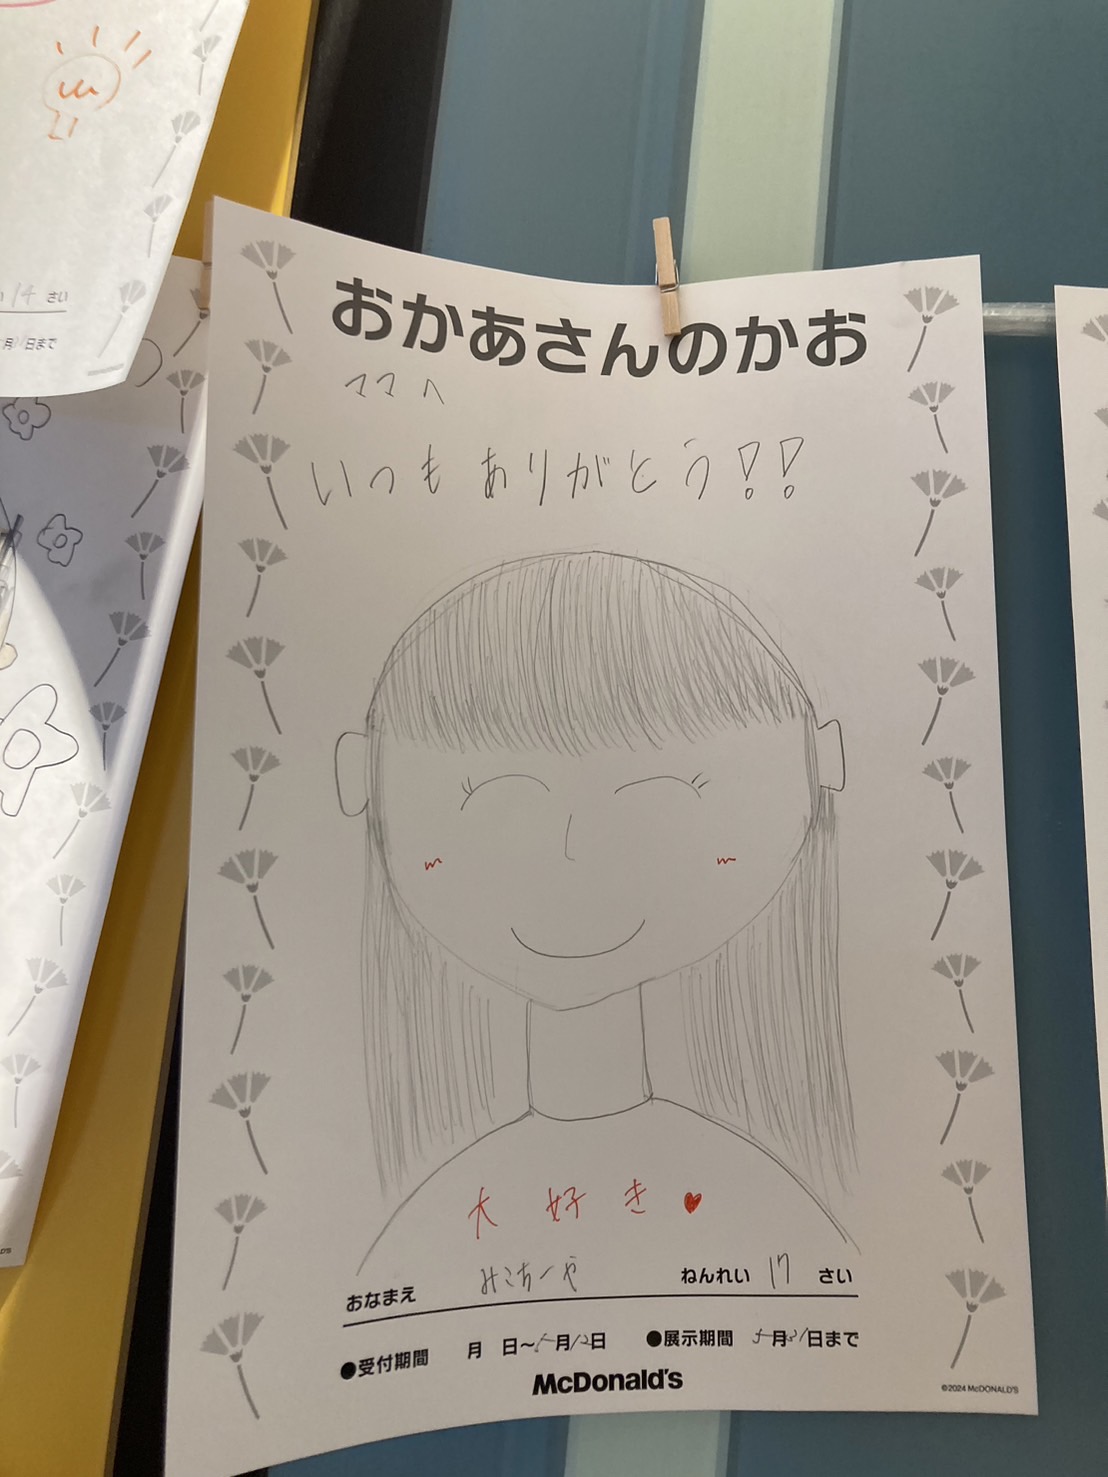 い 14 さい
月 日まで
おかあさんのかお
ママへ
いつもありがとう!!
大好き♥
おなまえ みこちーや ねんれい 17 さい
●受付期間 月 日~5月12日 ●展示期間 5月31日まで
McDonald's
©2024 McDONALD'S